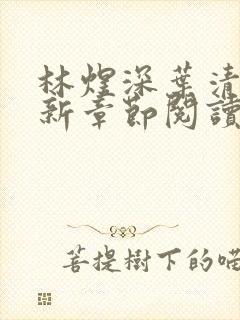 林煜深葉清
新章節閱讀
菩提樹下的喵